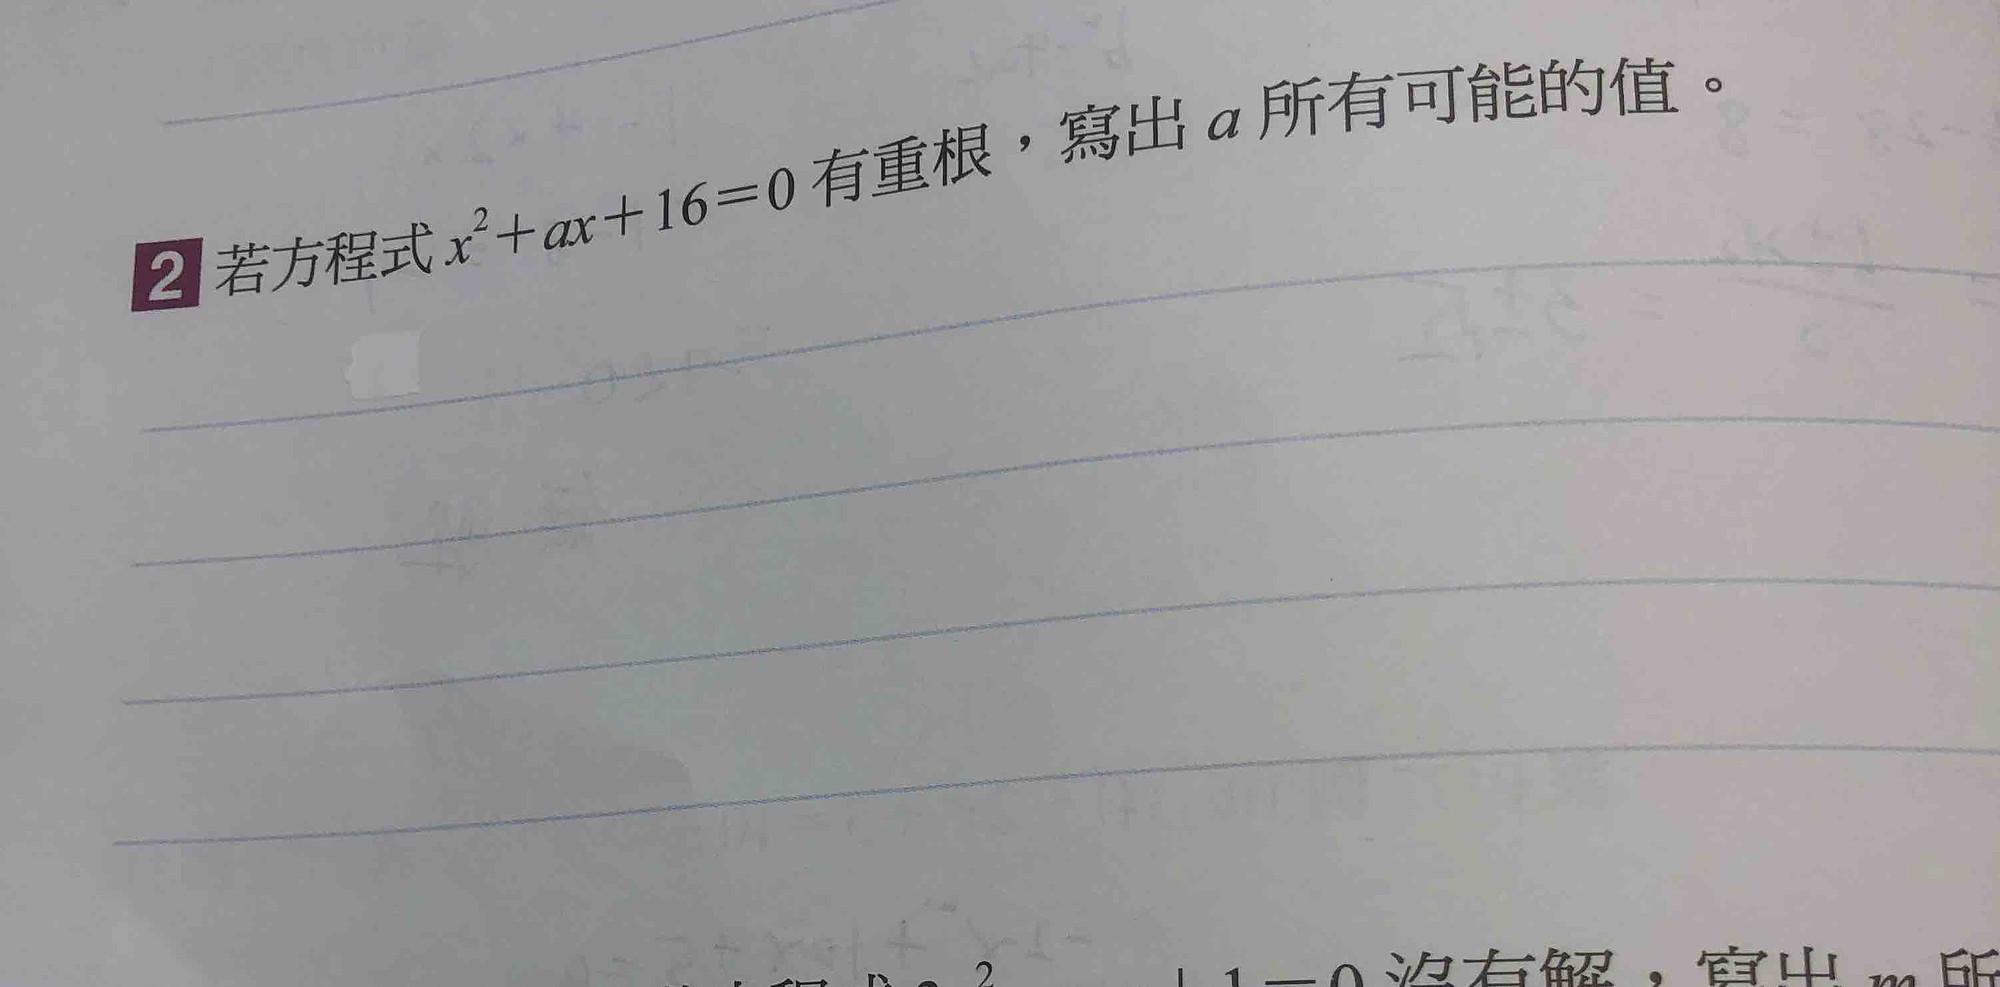 2 若方程式 x²+ax+16=0 有重根，寫出 a 所有可能的值。
+1=0 沒有解，寫出 m 所